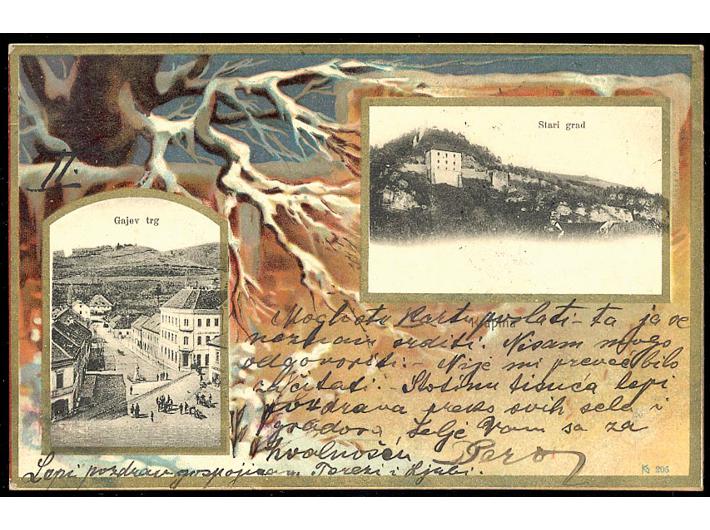 II.
Stari grad
Gajev trg
Krapina
kartu ja se
neznam srditi. Nisam mogo
odgovoriti. - Nije mi bilo
Stotinu tisuća lepi
pozdrava preko svih sela i
gradova želje Vam sa za
hvalnošću Pero
Lepi pozdrav gospojicam Terezi i
205